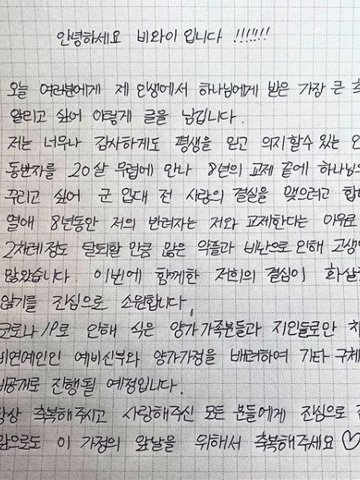 안녕하세요 비와이 입니다 !!!!!!!
오늘 여러분에게 제 인생에서 하나님에게 받은 가장 큰
알리고 싶어 이렇게 글을 남깁니다.
저는 너무나 감사하게도 평생을 믿고 의지할수 있는
동반자를 20살 무렵에 만나 8년의 교제 끝에 하나님의
꾸리고 싶어 군 입대 전 사랑의 결실을 맺으려고 합
열애 8년동안 저의 반려자는 저와 교제한다는 이유로
2차례정도 탈퇴할 만큼 많은 악플과 비난으로 인해 고생
많았습니다. 이번에 함께한 저희의 결심이 화살
않기를 진심으로 소원합니다.
코로나 19로 인해 식은 양가가족분들과 지인들로만
비연예인인 예비신부와 양가가정을 배려하여 기타 구체
비공개로 진행될 예정입니다.
항상 축복해주시고 사랑해주신 모든 분들에게 진심으로
앞으로도 이 가정의 앞날을 위해서 축복해주세요 ♡